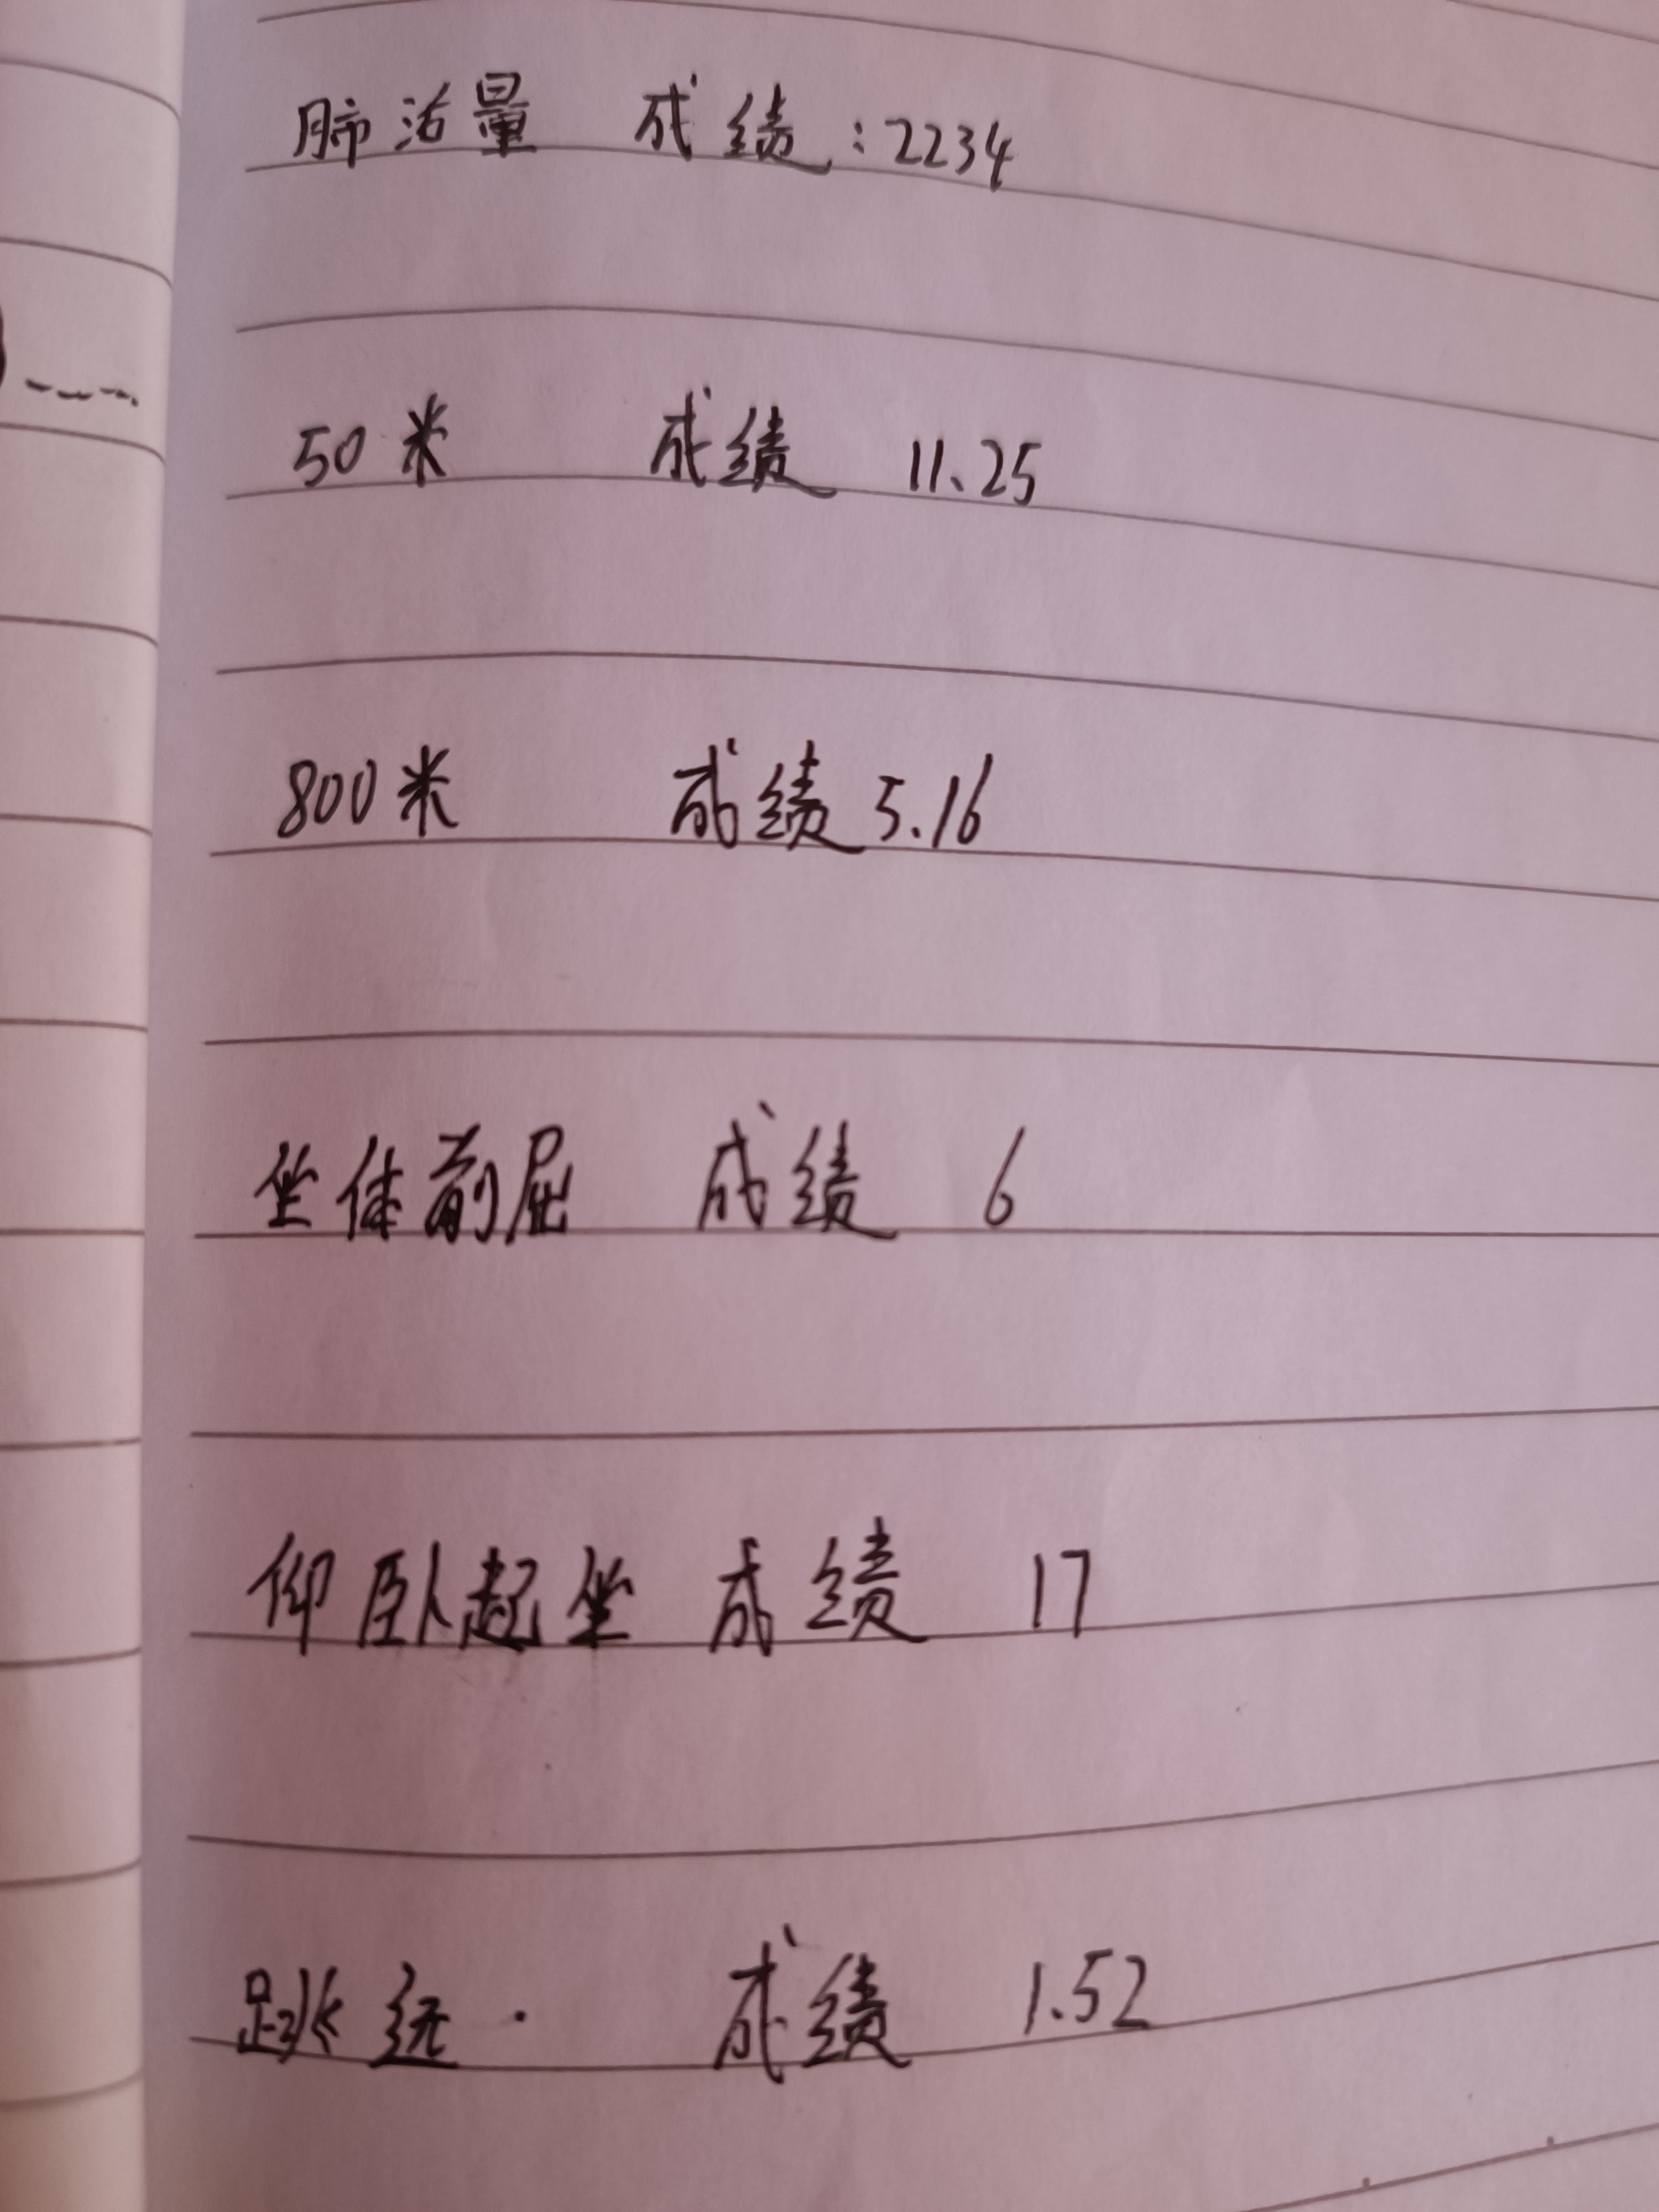 肺活量 成绩:2234
50米 成绩 11.25
800米 成绩 5.16
坐体前屈 成绩 6
仰卧起坐 成绩 17
跳远. 成绩 1.52